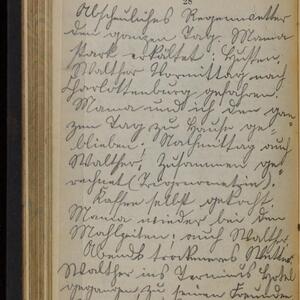 28
Abscheuliches Regenwetter
den ganzen Tag. Mama
stark erkältet: Husten.
Walther Vormittag nach
Charlottenburg gefahren.
Mama und ich den gan-
zen Tag zu Hause ge-
blieben. Nachmittag auch
Walther; zusammen ge-
rechnet (Trigonometrie).
Kaffee selbst gekocht.
Mama wieder bei den
Mahlzeiten; auch Walther.
Abends trockneres Wetter.
Walther ins Terminus Hotel
gegangen zu seinen Freunden